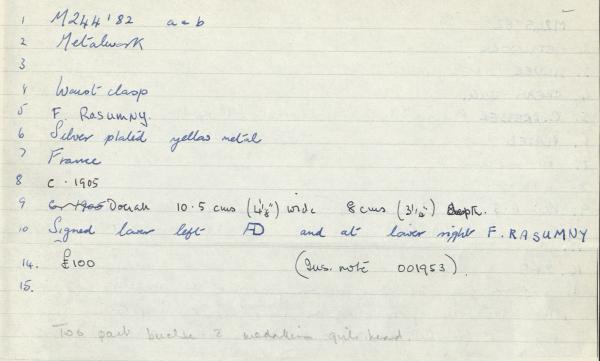 1 M244'82 a+b
2 Metalwork
3
4 Waist clasp
5 F. Rasumny.
6 Silver plated yellow metal
7 France
8 c. 1905
9 Overall 10.5 cms (4⅛") wide 8 cms (3⅛")
10 Signed lower left FD and at lower right F. RASUMNY
14. £100 (Ins. note 001953).
15.
Two part buckle 2 medallions girls head.